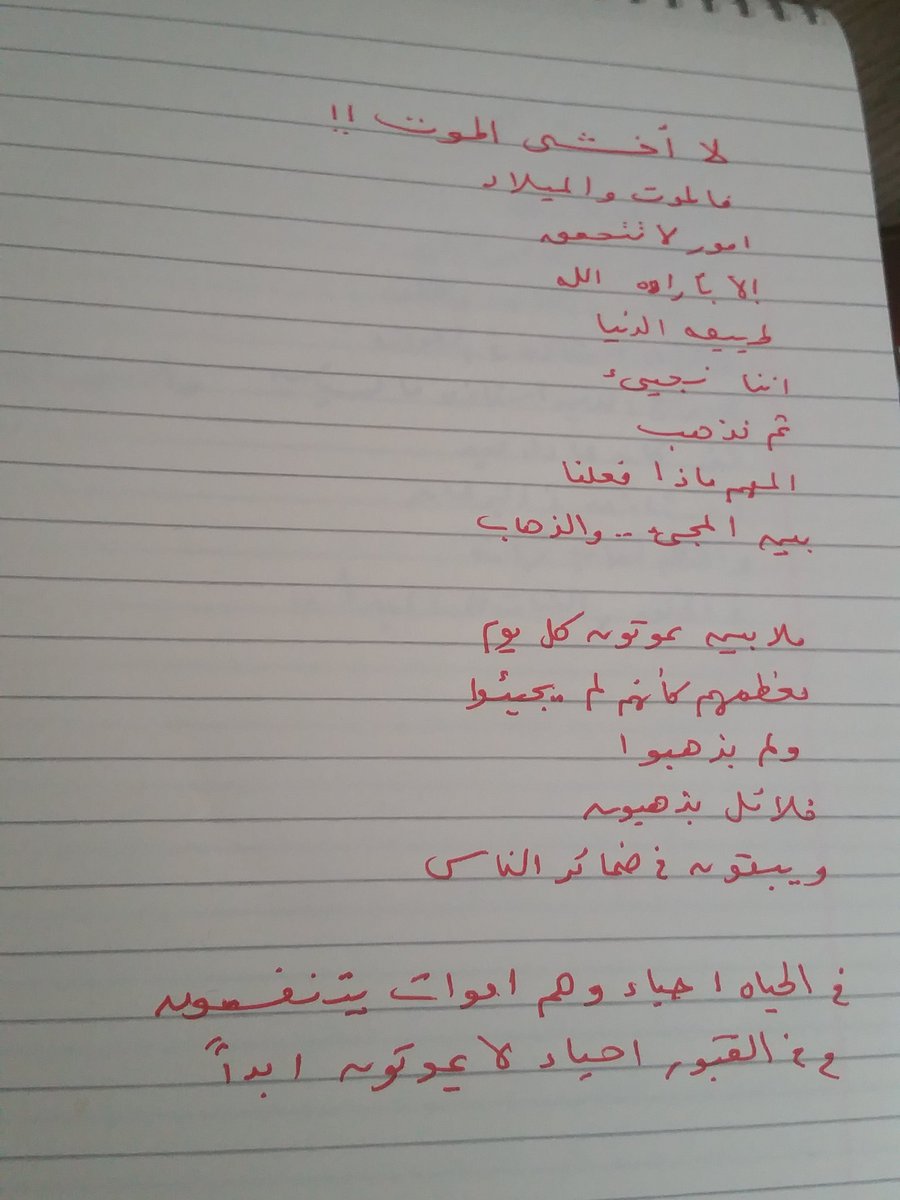 لا أخشى الموت !!
فالموت والميلاد
امور لا تتحقق
إلا بأراده الله
طبيعه الدنيا
اننا نجيىء
ثم نذهب
المهم ماذا فعلنا
بين المجىء .. والذهاب
ملايين يموتون كل يوم
معظمهم كأنهم لم يجيئوا
ولم يذهبوا
قلائل يذهبون
ويبقون في ضمائر الناس
في الحياه احياء وهم اموات يتنفسون
وفي القبور احياء لا يموتون ابداً